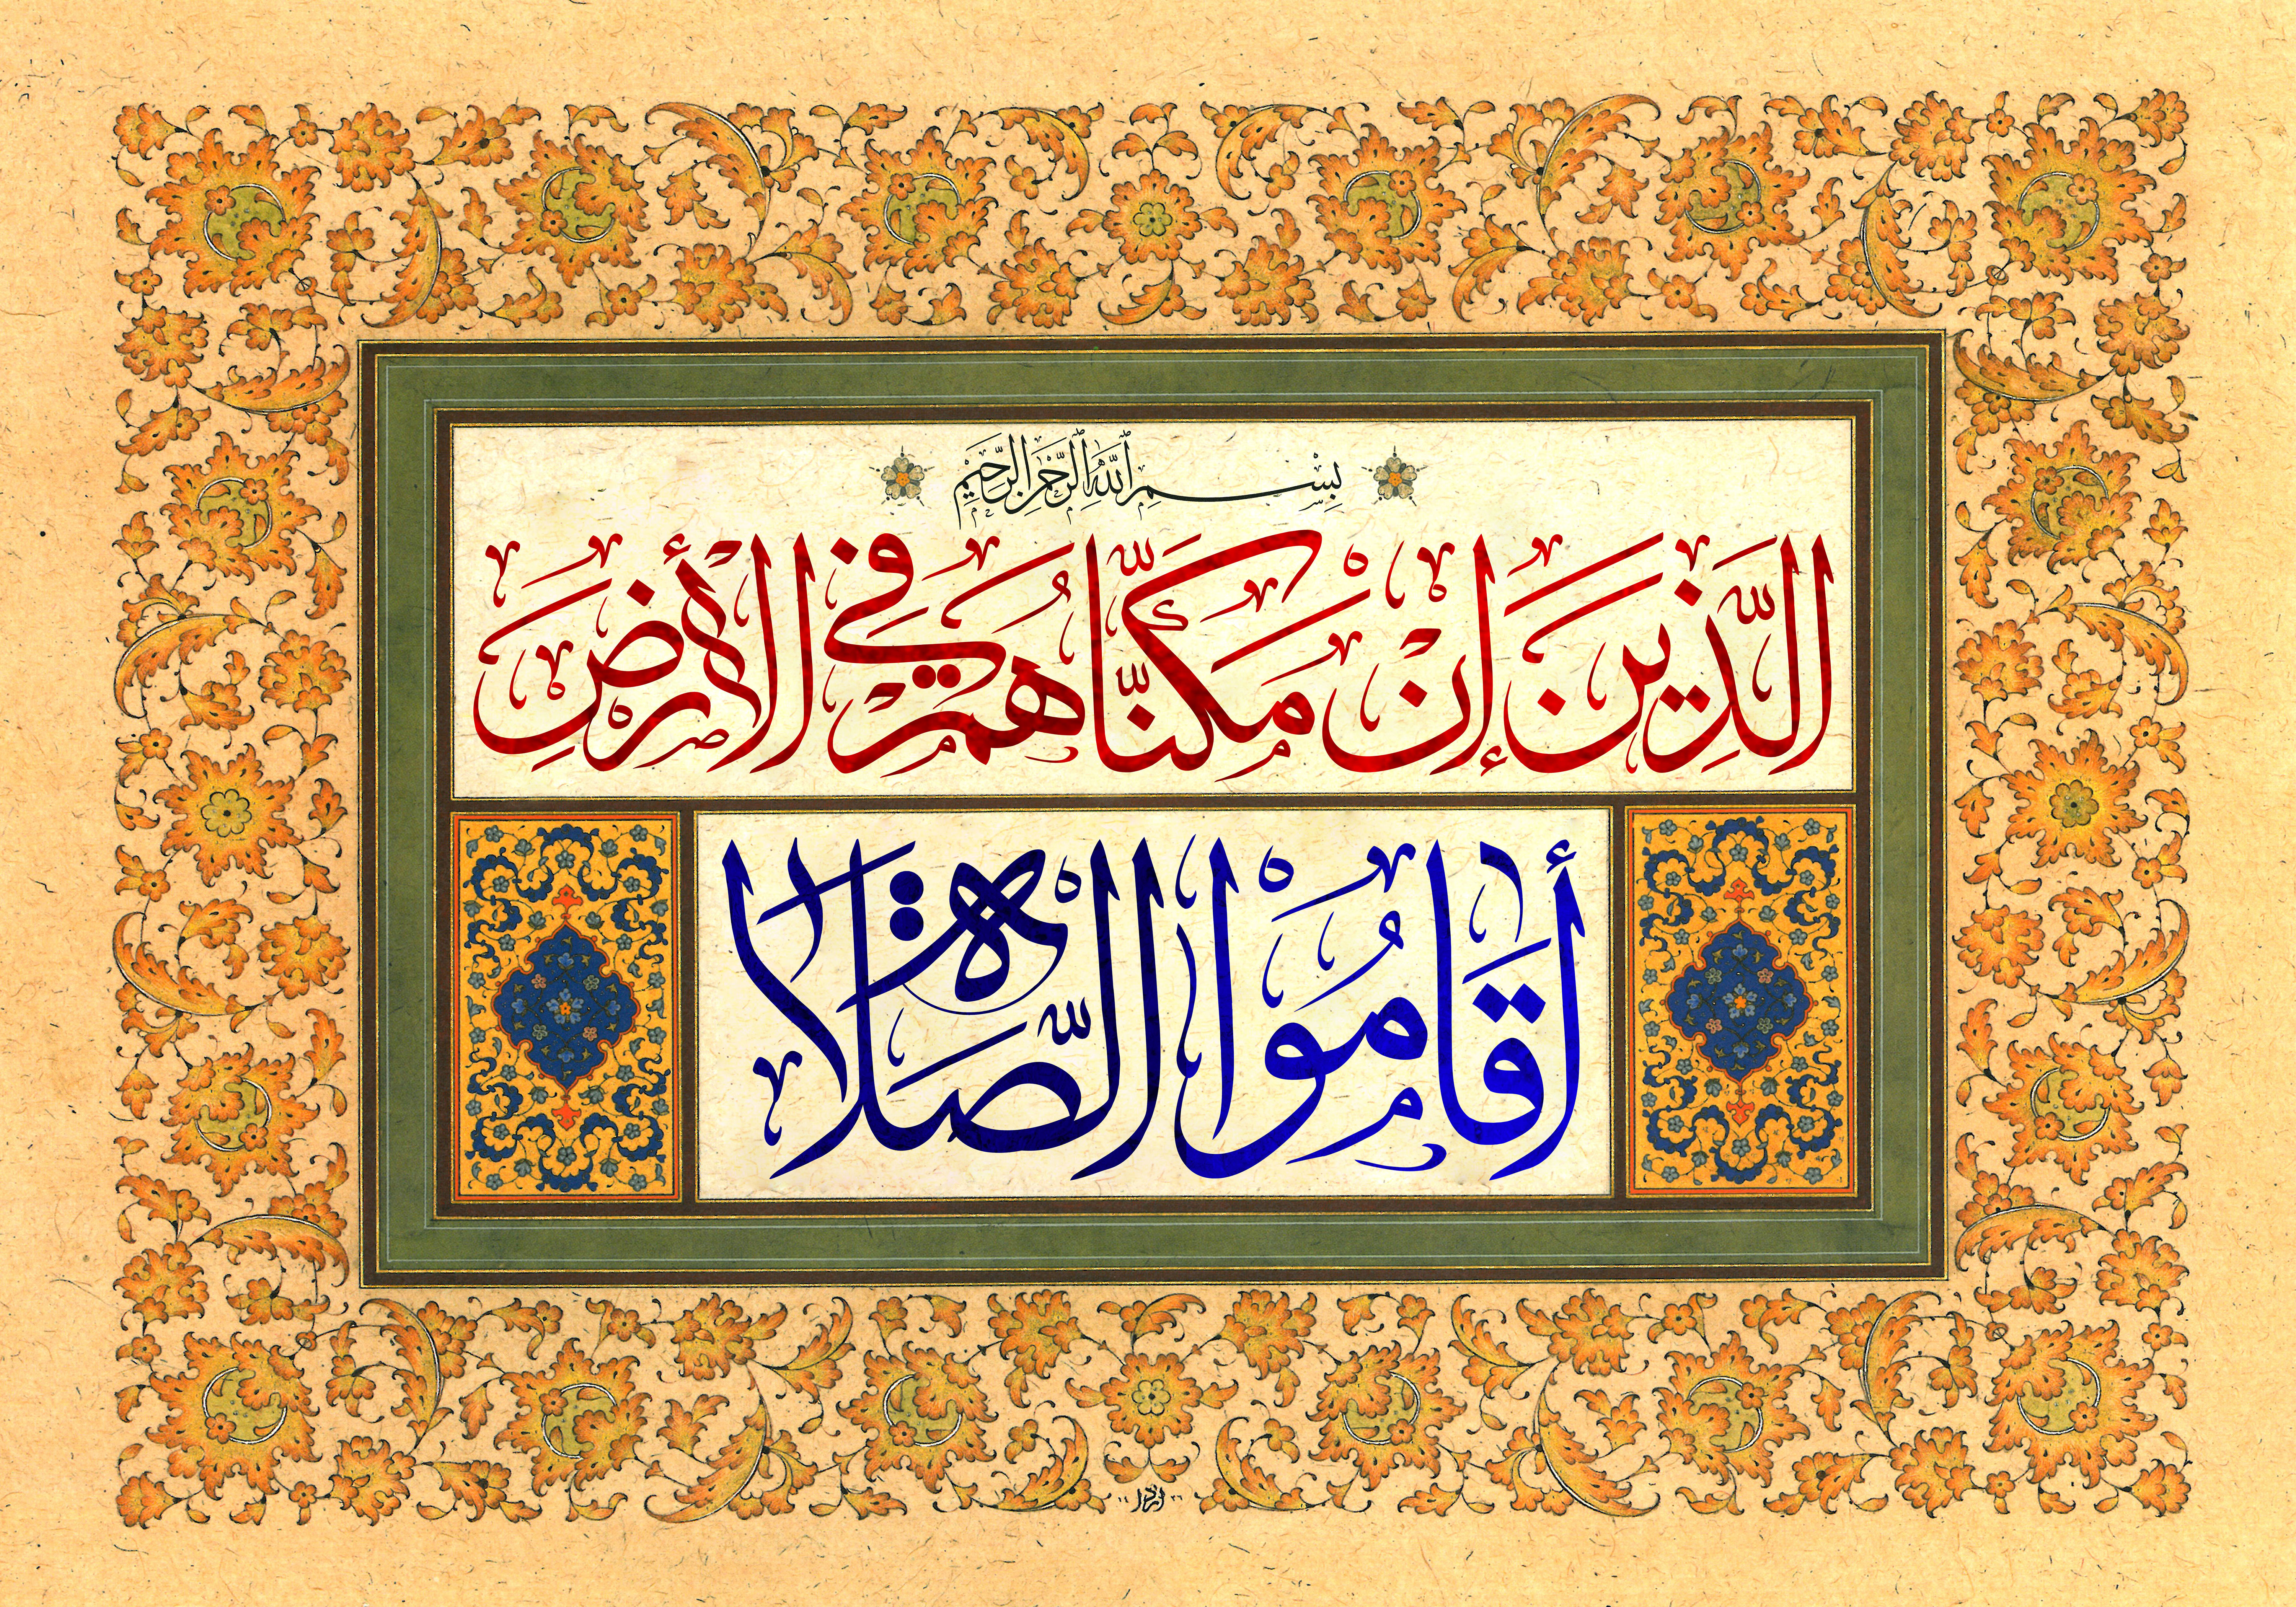 بسم الله الرحمن الرحيم
الَّذِينَ إِنْ مَكَّنَّاهُمْ فِي الْأَرْضِ
أَقَامُوا الصَّلَاةَ